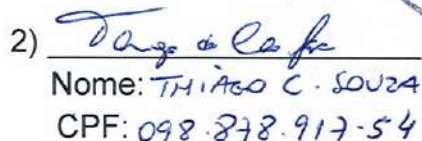 2)
Nome: THIAGO C. SOUZA
CPF: 098.878.917-54